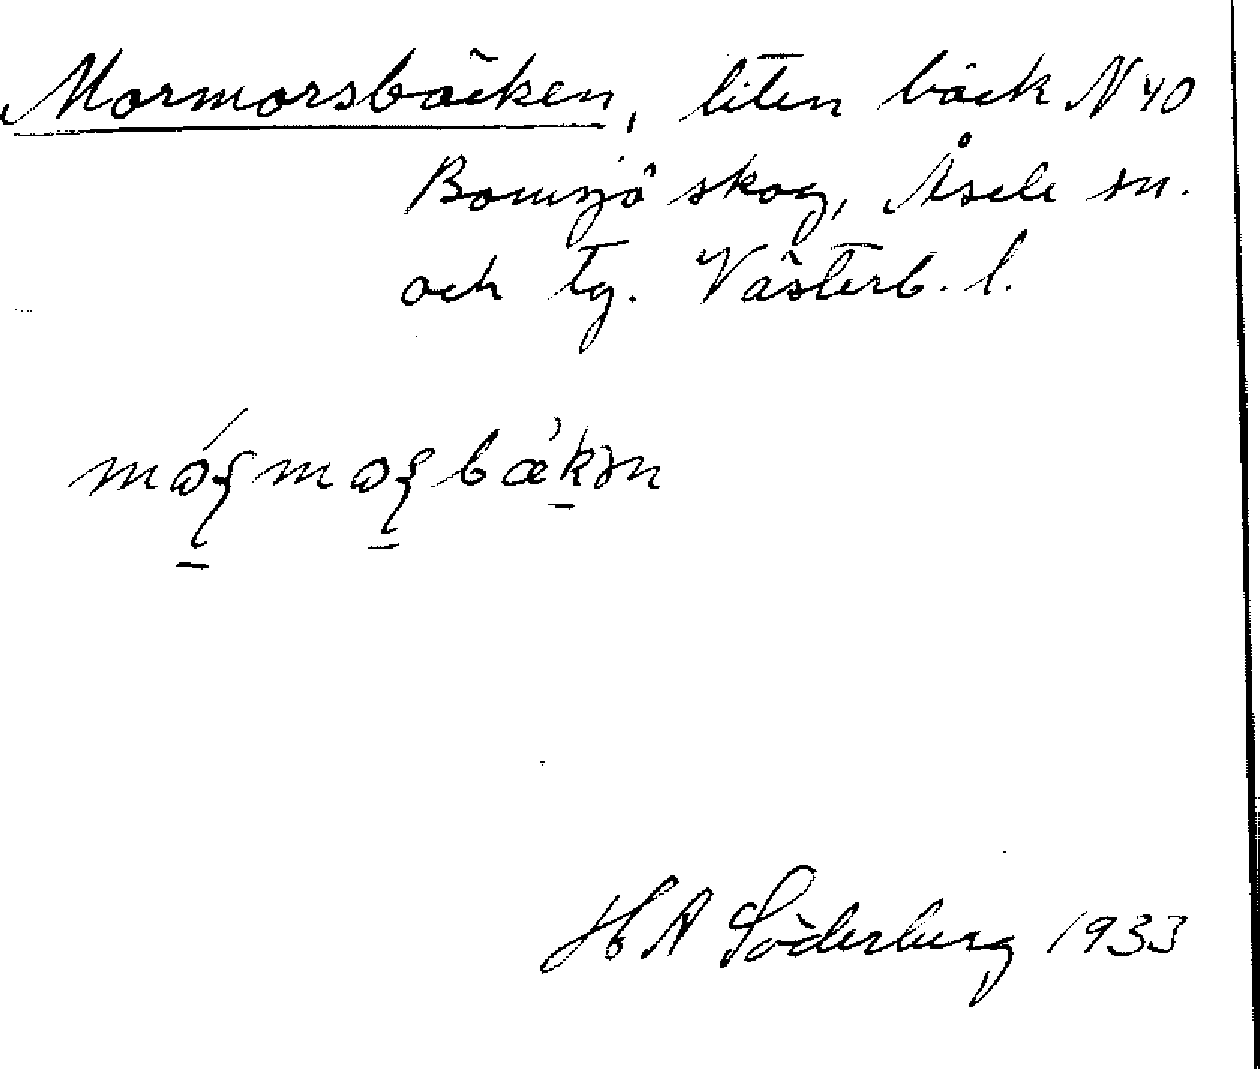 Mormorsbäcken, liten bäck N40
Bomsjö skog, Åsele sn.
och tg. Västerb. l.
H A Söderberg 1933